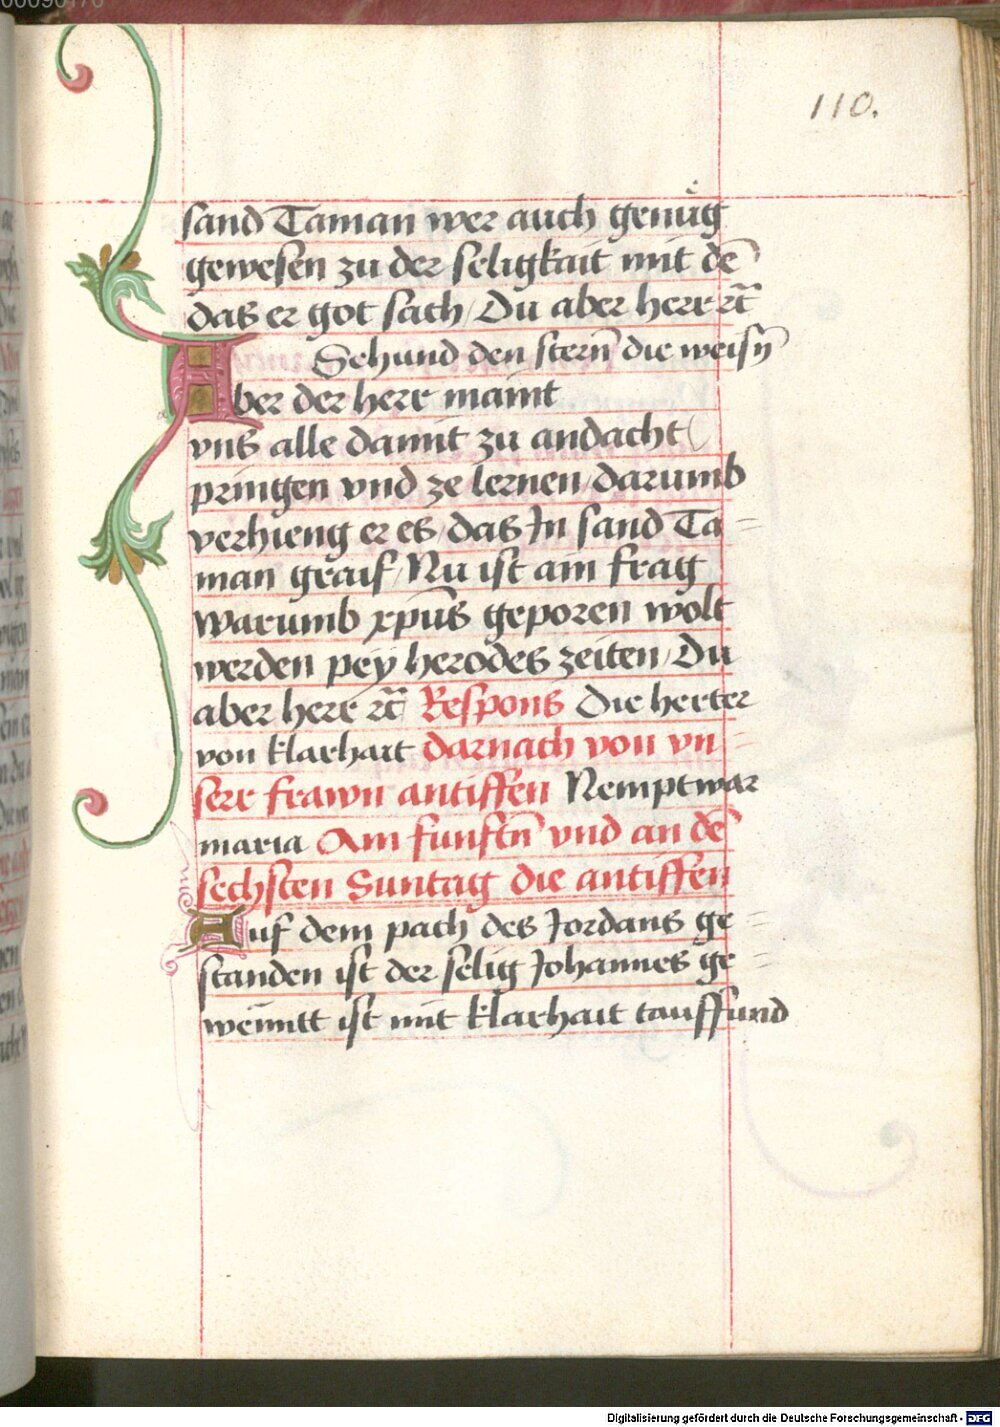 110.
sand Taman wer auch genůg
gewesen zu der seligkait mit dē
das er got sach / Du aber herr ꝛc̄
Sehund den stern̄ die weisn̄
Aber der herr maint
vns alle damit zu andacht
pringen vnd ze lernen / darumb
verhieng er es / das In sand Ta=
man graif / Nu ist ain frag
warumb xp̄us geporen wolt
werden pey herodes zeiten / Du
aber herr ꝛc̄ Respons Die herter
von klarhait darnach von vn=
serr frawn antiffen Nemptwar
maria Am funftn̄ vnd an dē
sechsten Suntag die antiffen
Auf dem pach des Jordans ge=
standen ist der selig Johannes ge=
weinitt ist mit klarhait tauffund
Digitalisierung gefördert durch die Deutsche Forschungsgemeinschaft - DFG